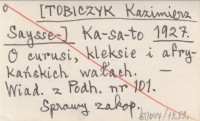 [TOBICZYK Kazimierz
Saysse-] Ka-sa-to 1927.
O curusi, kleksie i afry-
kańskich wałach. —
Wiad. z Podh. nr 101.
Sprawy zakop.